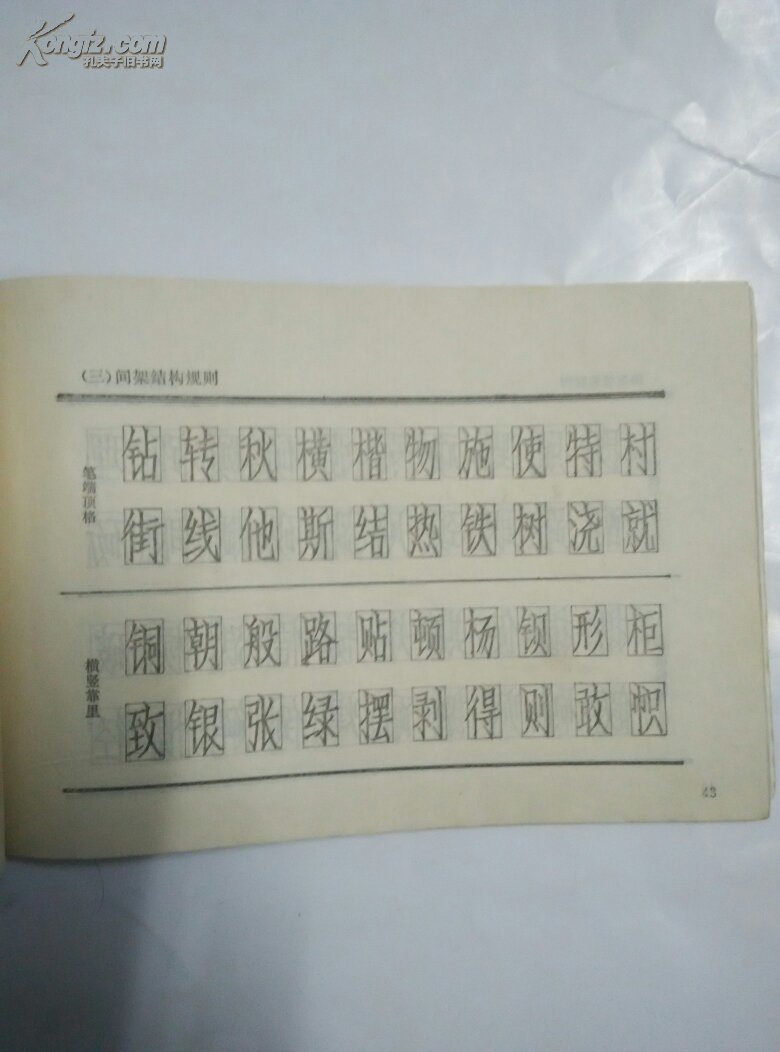 Kongfz.com
孔夫子旧书网
(三)间架结构规则
笔端顶格
钻转秋横楷物施使特村
街线他斯结热铁树浇就
横竖靠里
铜朝般路贴顿杨钡形柜
致银张绿摆剥得则敢帜
43